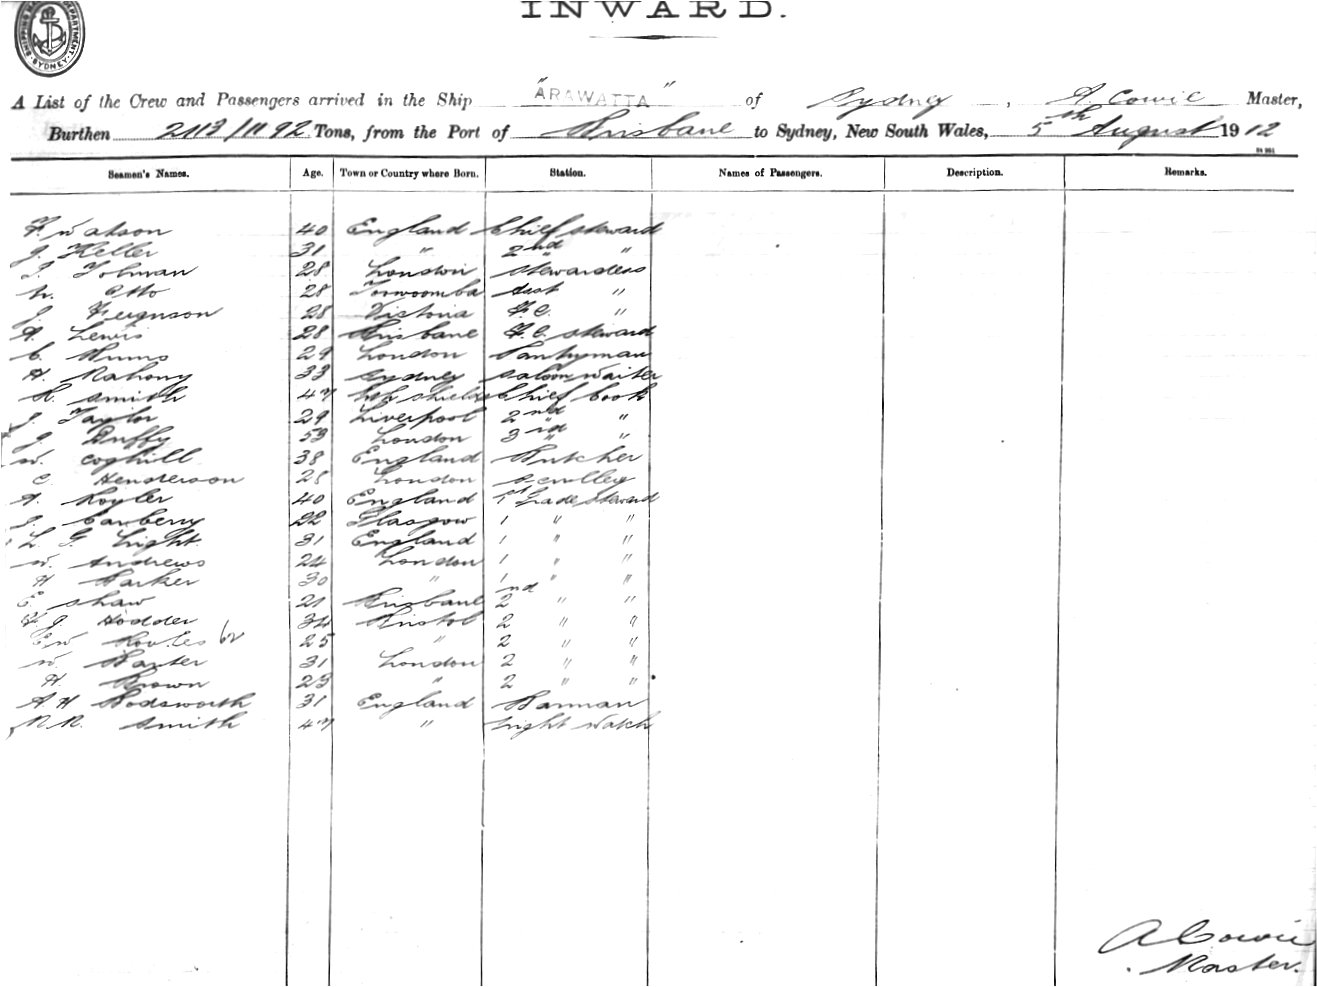 INWARD.
SHIPPING DEPARTMENT. SYDNEY.
A List of the Crew and Passengers arrived in the Ship "ARAWATTA" of Sydney, A. Cowie Master,
Burthen 2113/1192 Tons, from the Port of Brisbane to Sydney, New South Wales, 5th August 1912
Seamen's Names. Age. Town or Country where Born. Station. Names of Passengers. Description. Remarks.
F. Watson 40 England Chief Steward
J. Keller 31 " 2nd "
Tolman 28 London Stewardess
Otto 28 Toowoomba Asst "
J. Ferguson 28 Victoria F.C. "
A. Lewis 28 Brisbane F.C. Steward
C. 29 London Pantryman
H. Mahony 33 Sydney Saloon Waiter
R. Smith 47 Shields Chief Cook
J. Taylor 29 Liverpool 2nd "
J. Duffy 53 London 3rd "
W. Coghill 38 England Butcher
C. Henderson 28 London Scullery
A. 40 England 1st Grade Steward
J. Canberry 22 Glasgow 1 " "
L. G. Light 31 England 1 " "
W. Andrews 24 London 1 " "
H Barker 30 " 1 " "
E. Shaw 21 Brisbane 2nd " "
F. J. Hodder 34 Bristol 2 " "
E W 25 " 2 " "
W. Baxter 31 London 2 " "
H. Brown 23 " 2 " "
A. H Bodsworth 31 England Barman
R. R. Smith 47 " Night Watch
A Cowie
Master.